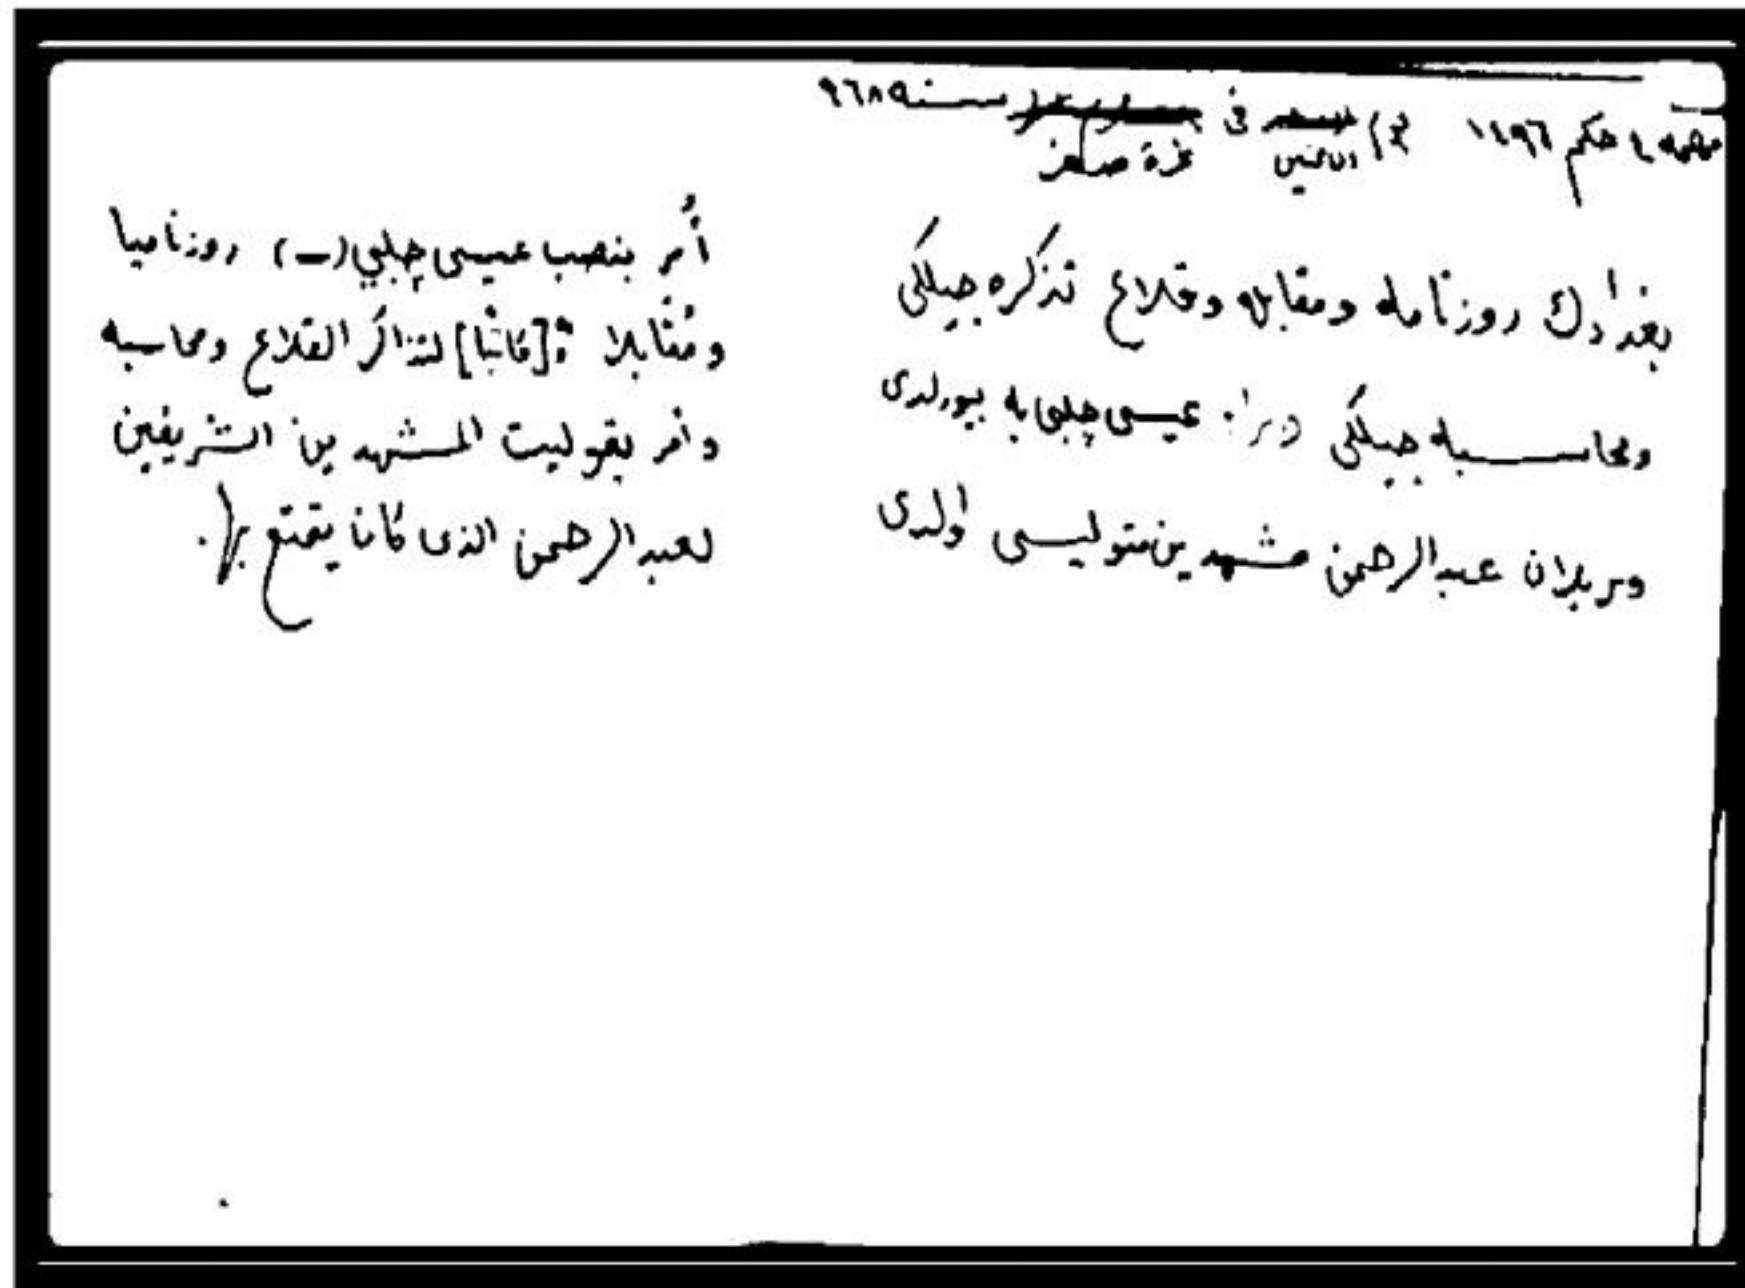 مهمه ٤ حكم ١٤٩٦ يوم الاثنين في غرة صفر سنه ٩٦٨
بغدادك روزنامه ومقابله وقلاع تذكره جيلكى
ومحاسبه جيلكى عيسى چلبى يه بيورلدى
عبد الرحمن مشهدين متوليسى اولدى
أُمر بنصب عيسى چلبي (ـ) روزناميا
ومُقابلا و [كاتبًا] لتذاكر القلاع ومحاسبه
وأمر بتوليت المشهدين الشريفين
لعبد الرحمن الذى كان يتمتع بها.